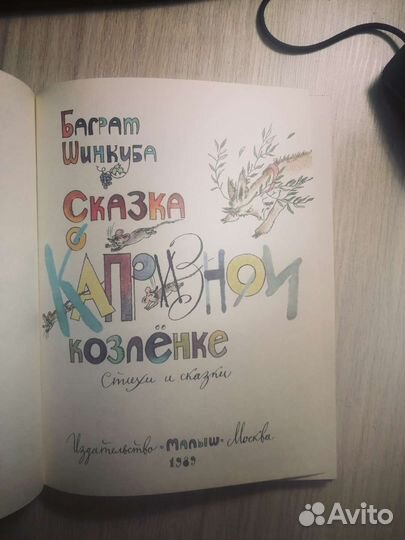 Баграт
Шинкуба
Сказка
о
КАПРИЗНОМ
козлёнке
Стихи и сказки
Издательство «Малыш» Москва
1989
Avito